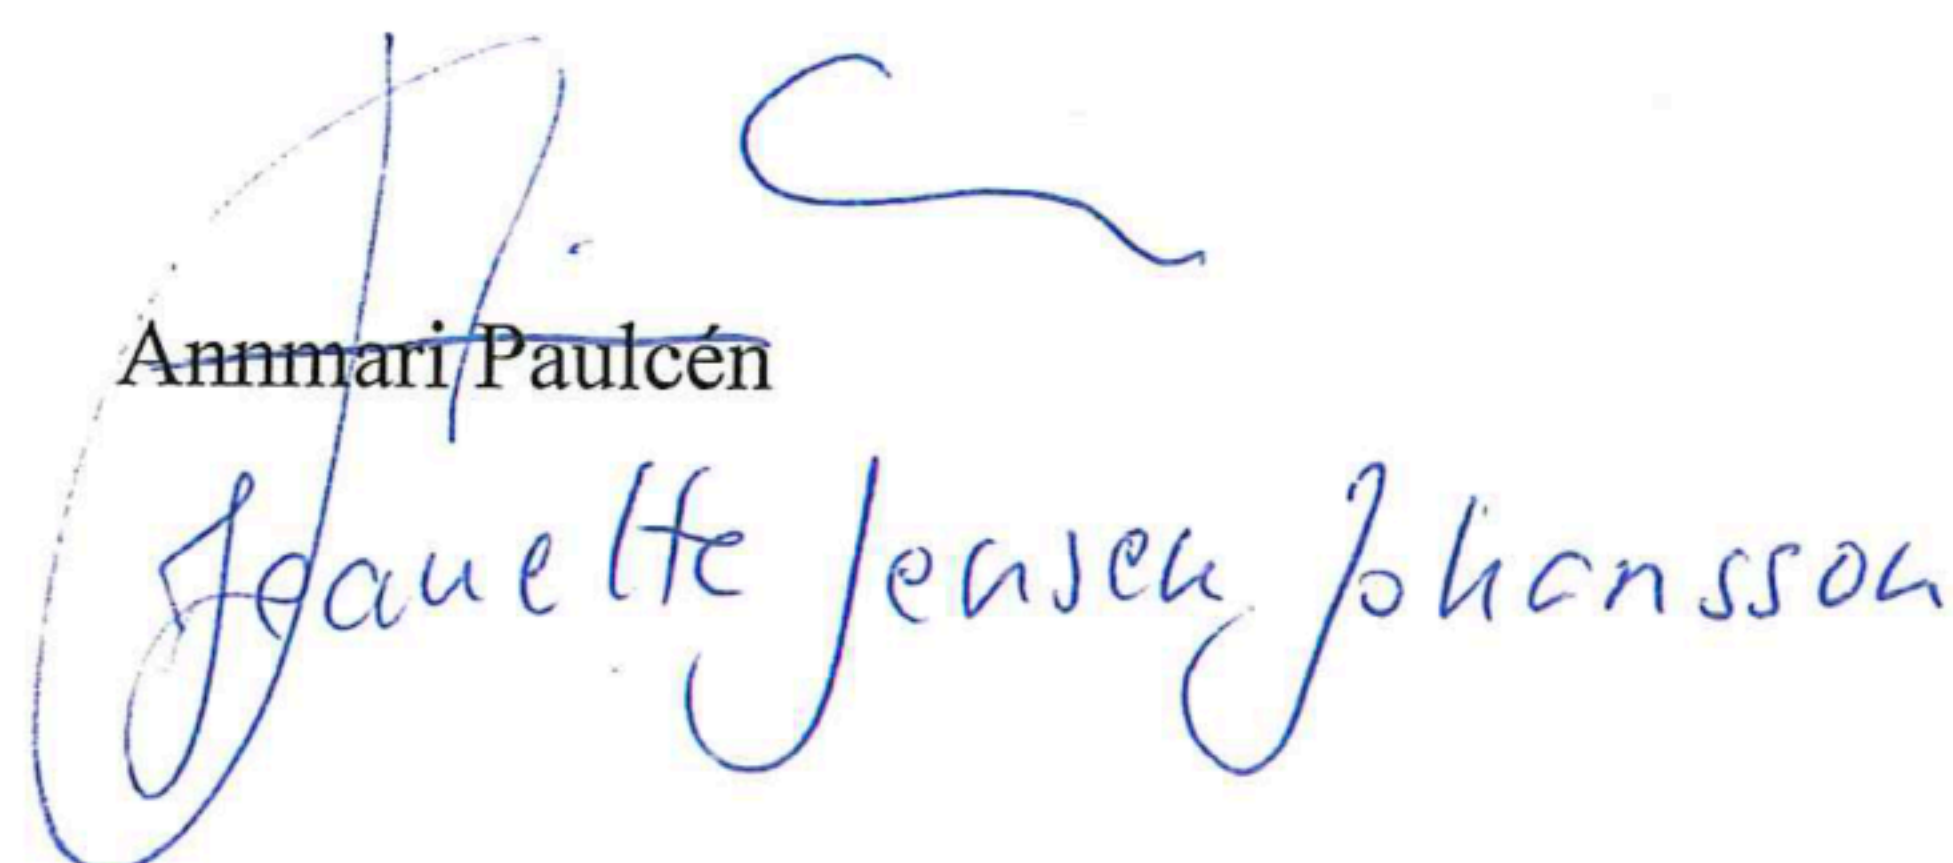 Annmari Paulcén
Jeanette Jensen Johansson